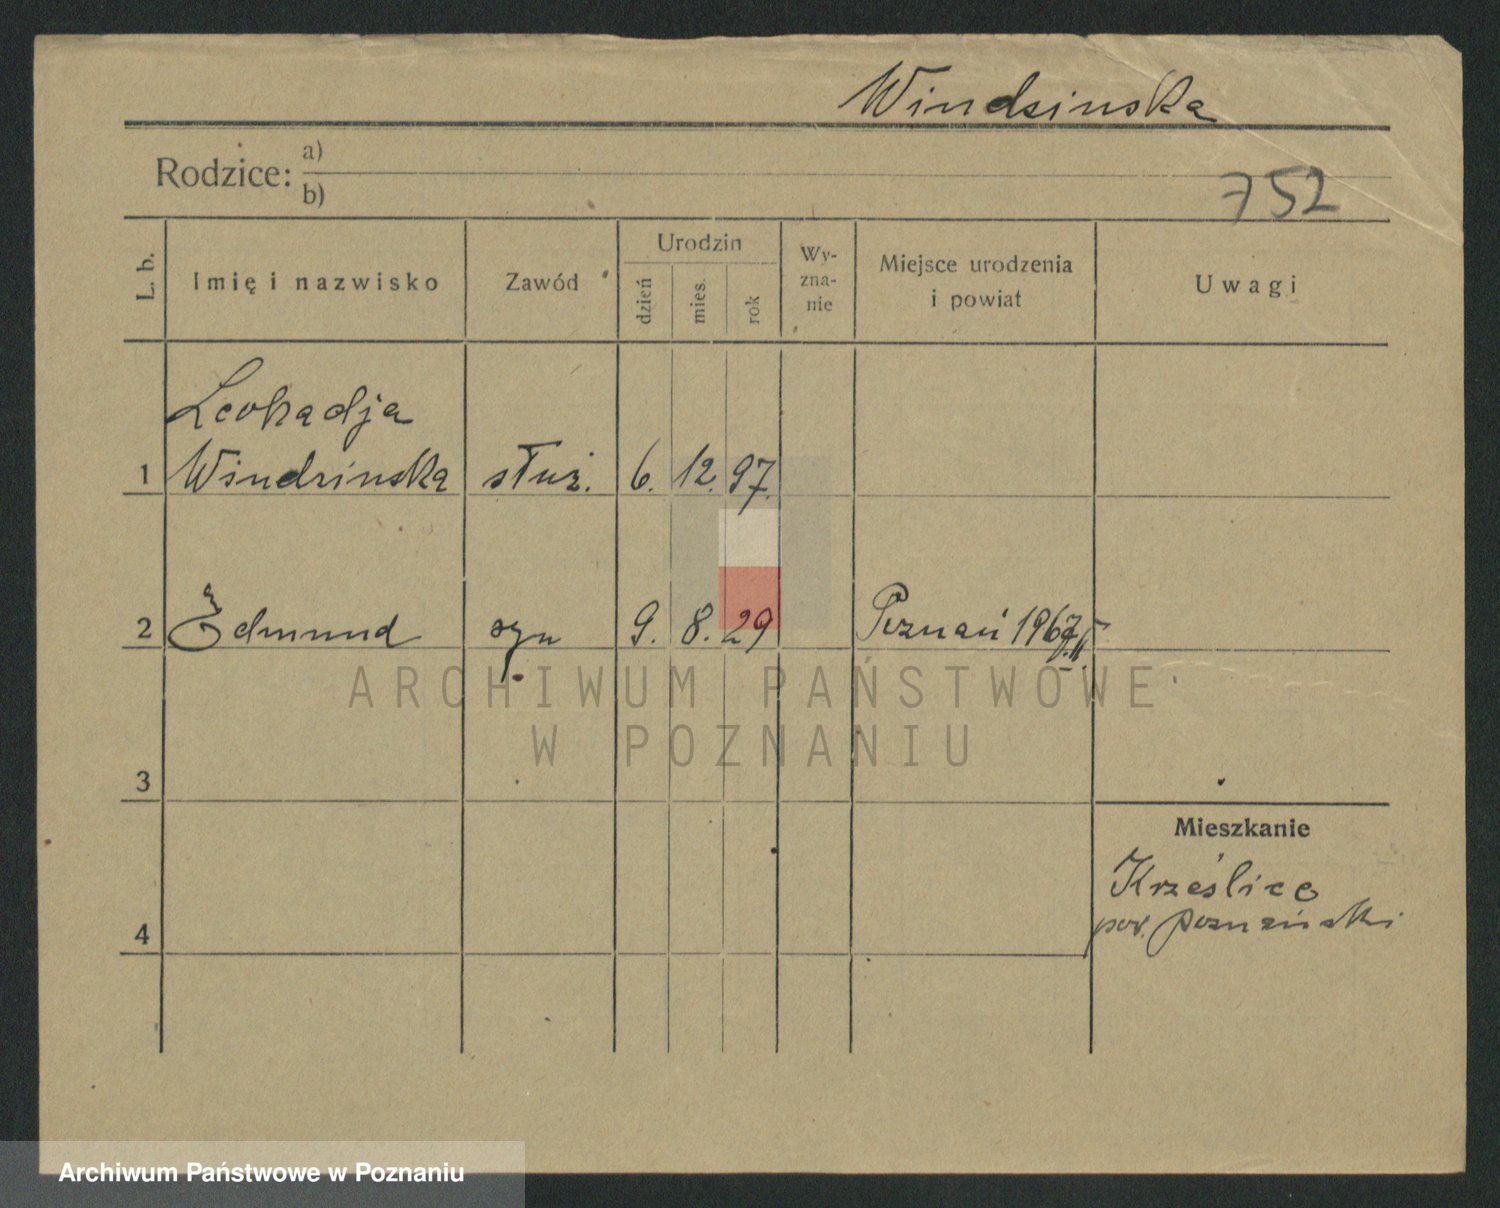 Windzinska
Rodzice: a)
b)
752
L. b.
Imię i nazwisko
Zawód
Urodzin
dzień
mies.
rok
Wy-
zna-
nie
Miejsce urodzenia
i powiat
Uwagi
Leokadja
1 Windzinska służ. 6. 12. 97.
2 Edmund syn 9. 8. 29 Poznań
ARCHIWUM PAŃSTWOWE
W POZNANIU
3
Mieszkanie
Krześlice
pow. Poznański
4
Archiwum Państwowe w Poznaniu